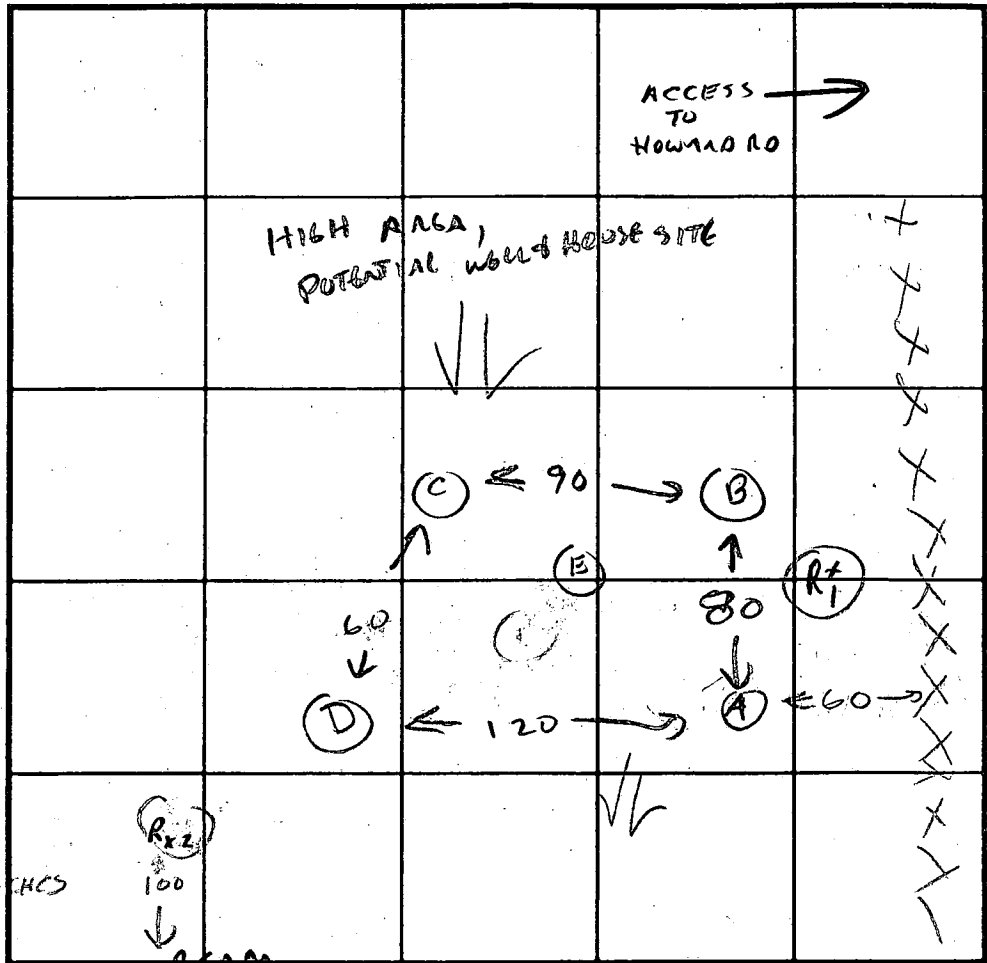 ACCESS
TO
HOWARD RD
HIGH AREA,
POTENTIAL WELL & HOUSE SITE
C ← 90 → B
E
Rx1
80
60
A ← 60 →
D ← 120 →
Rx2
100